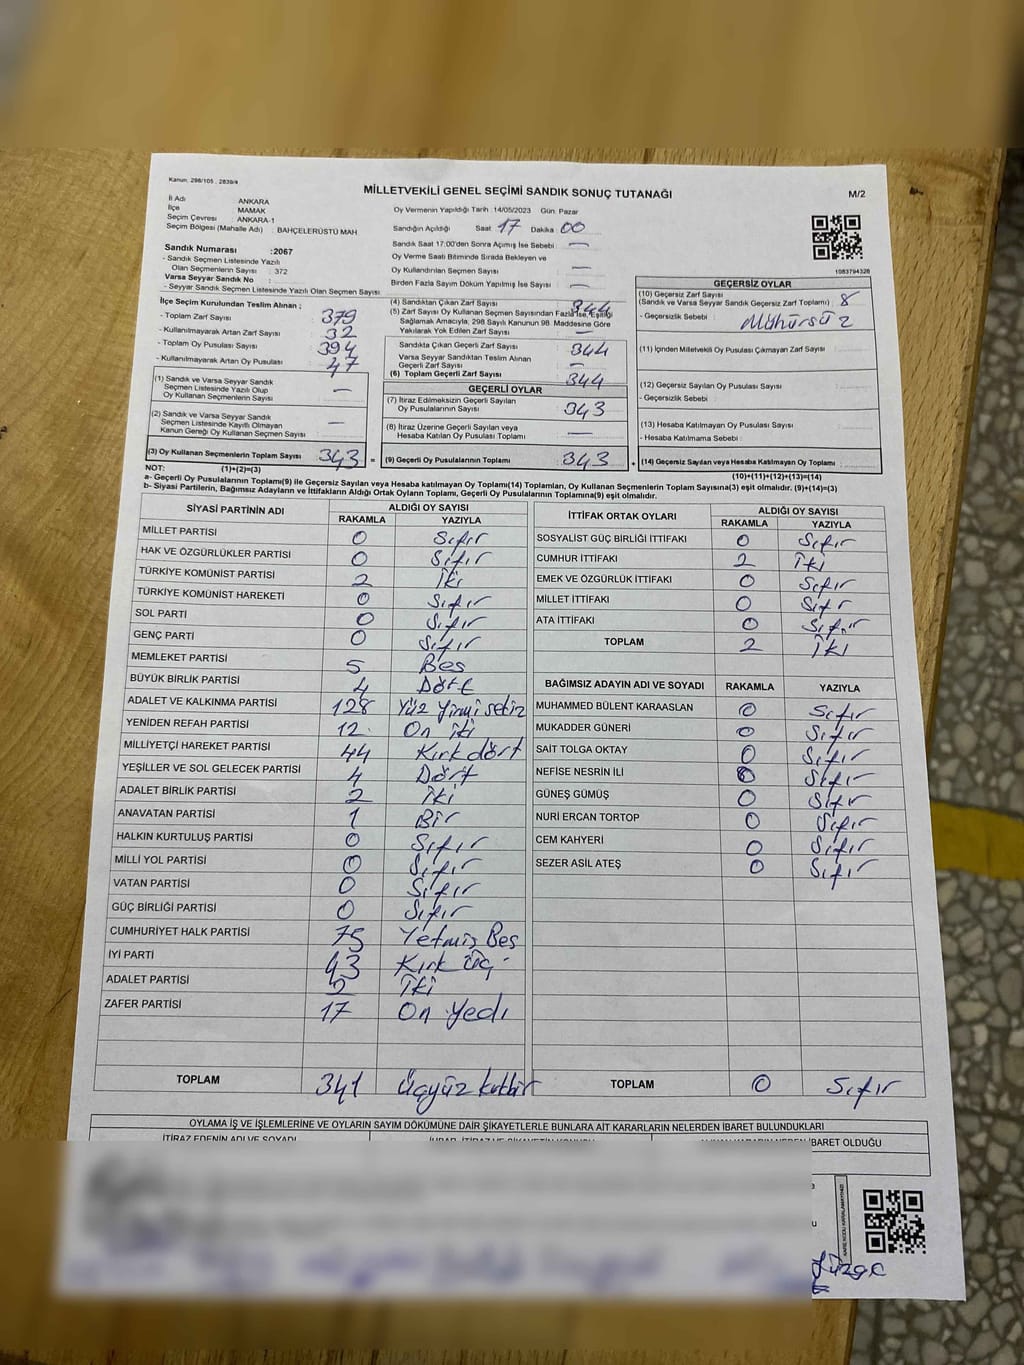 Kanun. 298/105 , 2839/4
MİLLETVEKİLİ GENEL SEÇİMİ SANDIK SONUÇ TUTANAĞI
M/2
İl Adı : ANKARA
İlçe : MAMAK
Seçim Çevresi : ANKARA-1
Seçim Bölgesi (Mahalle Adı) : BAHÇELERÜSTÜ MAH
Oy Vermenin Yapıldığı Tarih :14/05/2023 Gün: Pazar
Sandığın Açıldığı Saat 17 Dakika 00
Sandık Saat 17:00'den Sonra Açımış İse Sebebi : —
Oy Verme Saati Bitiminde Sırada Bekleyen ve
Oy Kullandırılan Seçmen Sayısı : —
Birden Fazla Sayım Döküm Yapılmış İse Sayısı : —
1083794328
Sandık Numarası :2067
- Sandık Seçmen Listesinde Yazılı
Olan Seçmenlerin Sayısı : 372
Varsa Seyyar Sandık No :
- Seyyar Sandık Seçmen Listesinde Yazılı Olan Seçmen Sayısı
İlçe Seçim Kurulundan Teslim Alınan ;
- Toplam Zarf Sayısı : 379
- Kullanılmayarak Artan Zarf Sayısı : 32
- Toplam Oy Pusulası Sayısı : 394
- Kullanılmayarak Artan Oy Pusulası : 47
(1) Sandık ve Varsa Seyyar Sandık
Seçmen Listesinde Yazılı Olup
Oy Kullanan Seçmenlerin Sayısı : —
(2) Sandık ve Varsa Seyyar Sandık
Seçmen Listesinde Kayıtlı Olmayan
Kanun Gereği Oy Kullanan Seçmen Sayısı : —
(3) Oy Kullanan Seçmenlerin Toplam Sayısı : 343
(4) Sandıktan Çıkan Zarf Sayısı : 344
(5) Zarf Sayısı Oy Kullanan Seçmen Sayısından Fazla İse, Eşitliği
Sağlamak Amacıyla, 298 Sayılı Kanunun 98. Maddesine Göre
Yakılarak Yok Edilen Zarf Sayısı : —
Sandıkta Çıkan Geçerli Zarf Sayısı : 344
Varsa Seyyar Sandıktan Teslim Alınan
Geçerli Zarf Sayısı : —
(6) Toplam Geçerli Zarf Sayısı : 344
GEÇERLİ OYLAR
(7) İtiraz Edilmeksizin Geçerli Sayılan
Oy Pusulalarının Sayısı : 343
(8) İtiraz Üzerine Geçerli Sayılan veya
Hesaba Katılan Oy Pusulası Toplamı : —
= (9) Geçerli Oy Pusulalarının Toplamı : 343
GEÇERSİZ OYLAR
(10) Geçersiz Zarf Sayısı
(Sandık ve Varsa Seyyar Sandık Geçersiz Zarf Toplamı) : 8
- Geçersizlik Sebebi : Mühürsüz
(11) İçinden Milletvekili Oy Pusulası Çıkmayan Zarf Sayısı :
(12) Geçersiz Sayılan Oy Pusulası Sayısı :
- Geçersizlik Sebebi :
(13) Hesaba Katılmayan Oy Pusulası Sayısı :
- Hesaba Katılmama Sebebi :
+ (14) Geçersiz Sayılan veya Hesaba Katılmayan Oy Toplamı :
NOT: (1)+(2)=(3)
(10)+(11)+(12)+(13)=(14)
a- Geçerli Oy Pusulalarının Toplamı(9) ile Geçersiz Sayılan veya Hesaba Katılmayan Oy Toplamı(14) Toplamları, Oy Kullanan Seçmenlerin Toplam Sayısına(3) eşit olmalıdır. (9)+(14)=(3)
b- Siyasi Partilerin, Bağımsız Adayların ve İttifakların Aldığı Ortak Oyların Toplamı, Geçerli Oy Pusulalarının Toplamına(9) eşit olmalıdır.
SİYASİ PARTİNİN ADI ALDIĞI OY SAYISI
RAKAMLA YAZIYLA
MİLLET PARTİSİ 0 Sıfır
HAK VE ÖZGÜRLÜKLER PARTİSİ 0 Sıfır
TÜRKİYE KOMÜNİST PARTİSİ 2 İki
TÜRKİYE KOMÜNİST HAREKETİ 0 Sıfır
SOL PARTİ 0 Sıfır
GENÇ PARTİ 0 Sıfır
MEMLEKET PARTİSİ 5 Beş
BÜYÜK BİRLİK PARTİSİ 4 Dört
ADALET VE KALKINMA PARTİSİ 128 Yüz Yirmi sekiz
YENİDEN REFAH PARTİSİ 12 On iki
MİLLİYETÇİ HAREKET PARTİSİ 44 Kırk dört
YEŞİLLER VE SOL GELECEK PARTİSİ 4 Dört
ADALET BİRLİK PARTİSİ 2 İki
ANAVATAN PARTİSİ 1 Bir
HALKIN KURTULUŞ PARTİSİ 0 Sıfır
MİLLİ YOL PARTİSİ 0 Sıfır
VATAN PARTİSİ 0 Sıfır
GÜÇ BİRLİĞİ PARTİSİ 0 Sıfır
CUMHURİYET HALK PARTİSİ 75 Yetmiş Beş
İYİ PARTİ 43 Kırk Üç
ADALET PARTİSİ 2 İki
ZAFER PARTİSİ 17 On Yedi
TOPLAM 341 Üçyüz kırkbir
İTTİFAK ORTAK OYLARI ALDIĞI OY SAYISI
RAKAMLA YAZIYLA
SOSYALİST GÜÇ BİRLİĞİ İTTİFAKI 0 Sıfır
CUMHUR İTTİFAKI 2 İki
EMEK VE ÖZGÜRLÜK İTTİFAKI 0 Sıfır
MİLLET İTTİFAKI 0 Sıfır
ATA İTTİFAKI 0 Sıfır
TOPLAM 2 İki
BAĞIMSIZ ADAYIN ADI VE SOYADI RAKAMLA YAZIYLA
MUHAMMED BÜLENT KARAASLAN 0 Sıfır
MUKADDER GÜNERİ 0 Sıfır
SAİT TOLGA OKTAY 0 Sıfır
NEFİSE NESRİN İLİ 0 Sıfır
GÜNEŞ GÜMÜŞ 0 Sıfır
NURİ ERCAN TORTOP 0 Sıfır
CEM KAHYERİ 0 Sıfır
SEZER ASİL ATEŞ 0 Sıfır
TOPLAM 0 Sıfır
OYLAMA İŞ VE İŞLEMLERİNE VE OYLARIN SAYIM DÖKÜMÜNE DAİR ŞİKAYETLERLE BUNLARA AİT KARARLARIN NELERDEN İBARET BULUNDUKLARI
İTİRAZ EDENİN ADI VE SOYADI
İBARET OLDUĞU